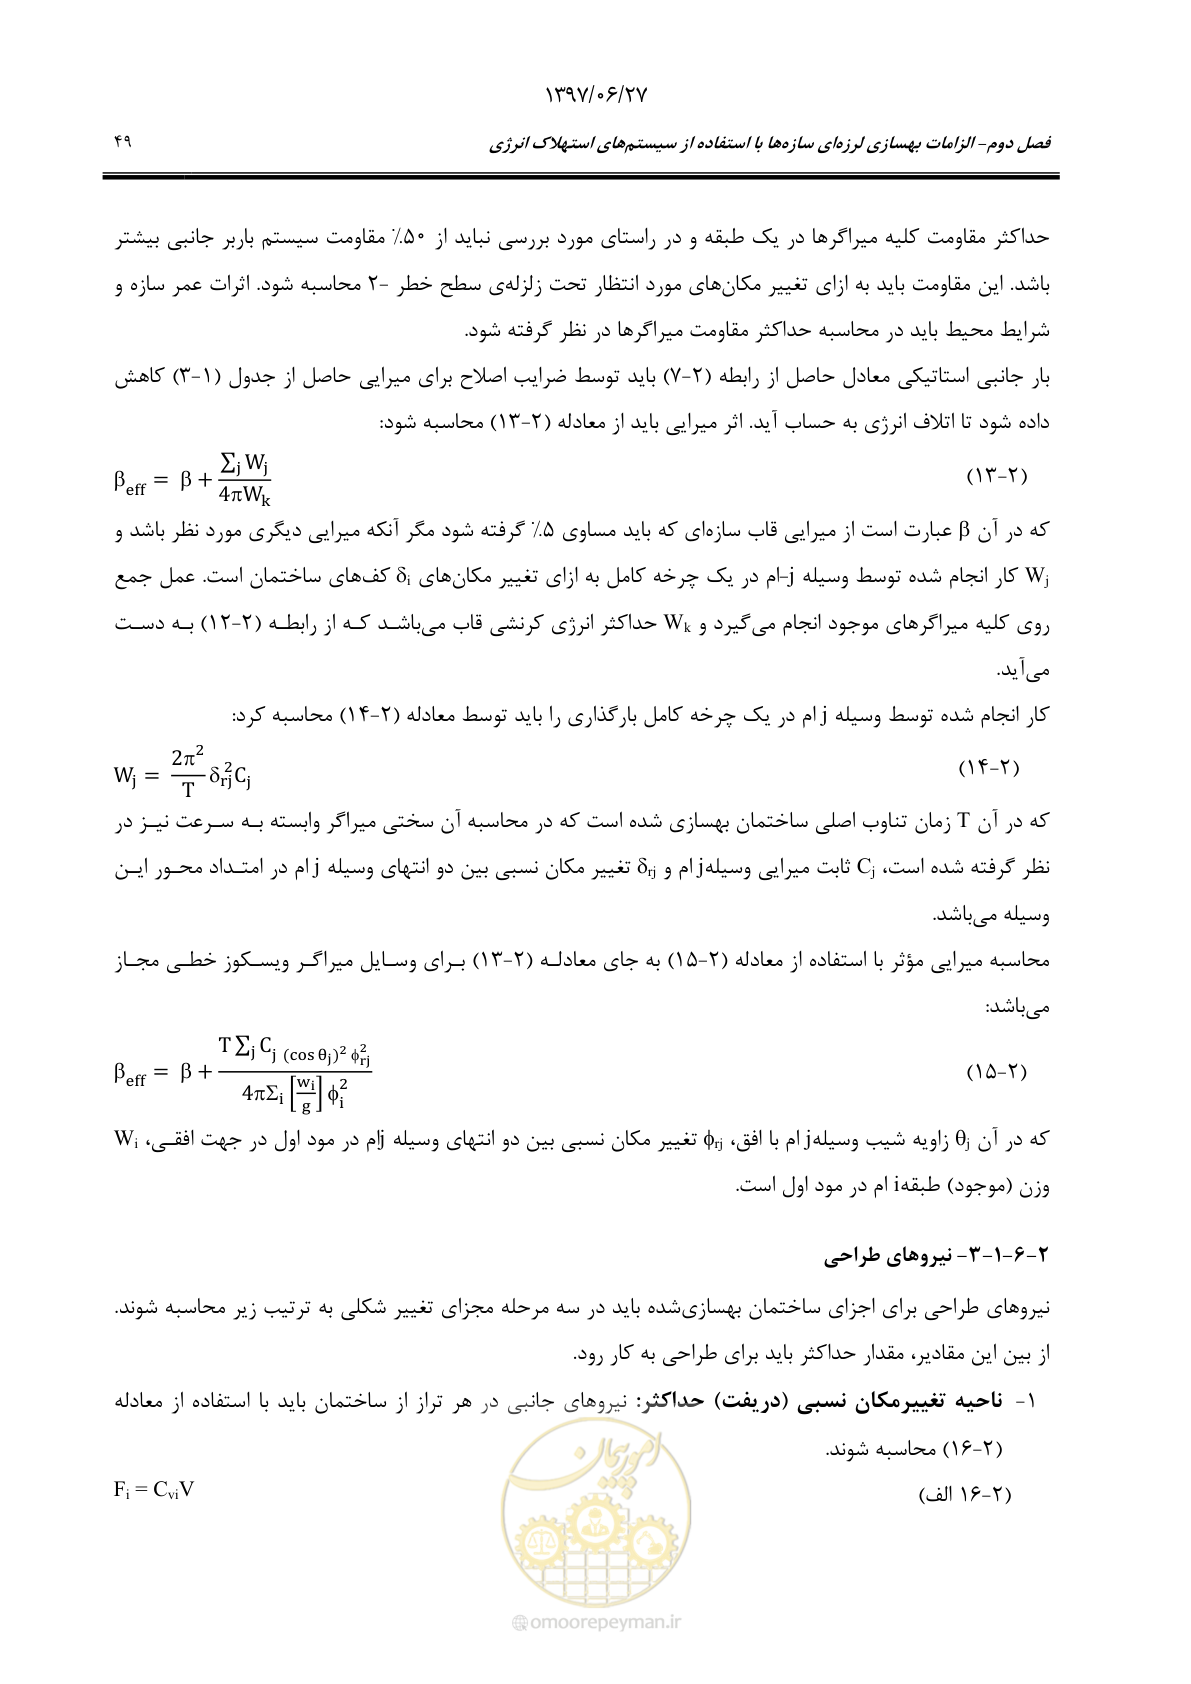 ۱۳۹۷/۰۶/۲۷
فصل دوم- الزامات بهسازی لرزه‌ای سازه‌ها با استفاده از سیستم‌های استهلاک انرژی ۴۹
حداکثر مقاومت کلیه میراگرها در یک طبقه و در راستای مورد بررسی نباید از ۵۰٪ مقاومت سیستم باربر جانبی بیشتر
باشد. این مقاومت باید به ازای تغییر مکان‌های مورد انتظار تحت زلزله‌ی سطح خطر -۲ محاسبه شود. اثرات عمر سازه و
شرایط محیط باید در محاسبه حداکثر مقاومت میراگرها در نظر گرفته شود.
بار جانبی استاتیکی معادل حاصل از رابطه (۲-۷) باید توسط ضرایب اصلاح برای میرایی حاصل از جدول (۱-۳) کاهش
داده شود تا اتلاف انرژی به حساب آید. اثر میرایی باید از معادله (۲-۱۳) محاسبه شود:
(۲-۱۳) β_eff = β + (∑_j W_j)/(4πW_k)
که در آن β عبارت است از میرایی قاب سازه‌ای که باید مساوی ۵٪ گرفته شود مگر آنکه میرایی دیگری مورد نظر باشد و
W_j کار انجام شده توسط وسیله j-ام در یک چرخه کامل به ازای تغییر مکان‌های δ_i کف‌های ساختمان است. عمل جمع
روی کلیه میراگرهای موجود انجام می‌گیرد و W_k حداکثر انرژی کرنشی قاب می‌باشد که از رابطه (۲-۱۲) به دست
می‌آید.
کار انجام شده توسط وسیله j ام در یک چرخه کامل بارگذاری را باید توسط معادله (۲-۱۴) محاسبه کرد:
(۲-۱۴) W_j = (2π²/T) δ_rj² C_j
که در آن T زمان تناوب اصلی ساختمان بهسازی شده است که در محاسبه آن سختی میراگر وابسته به سرعت نیز در
نظر گرفته شده است، C_j ثابت میرایی وسیله j ام و δ_rj تغییر مکان نسبی بین دو انتهای وسیله j ام در امتداد محور این
وسیله می‌باشد.
محاسبه میرایی مؤثر با استفاده از معادله (۲-۱۵) به جای معادله (۲-۱۳) برای وسایل میراگر ویسکوز خطی مجاز
می‌باشد:
(۲-۱۵) β_eff = β + (T ∑_j C_j (cos θ_j)² ϕ_rj²)/(4π Σ_i [w_i/g] ϕ_i²)
که در آن θ_j زاویه شیب وسیله j ام با افق، ϕ_rj تغییر مکان نسبی بین دو انتهای وسیله j ام در مود اول در جهت افقی، W_i
وزن (موجود) طبقه i ام در مود اول است.
۲-۶-۱-۳- نیروهای طراحی
نیروهای طراحی برای اجزای ساختمان بهسازی‌شده باید در سه مرحله مجزای تغییر شکلی به ترتیب زیر محاسبه شوند.
از بین این مقادیر، مقدار حداکثر باید برای طراحی به کار رود.
۱- ناحیه تغییرمکان نسبی (دریفت) حداکثر: نیروهای جانبی در هر تراز از ساختمان باید با استفاده از معادله
(۲-۱۶) محاسبه شوند.
(۲-۱۶ الف) F_i = C_vi V
امورپیمان
@omoorepeyman.ir